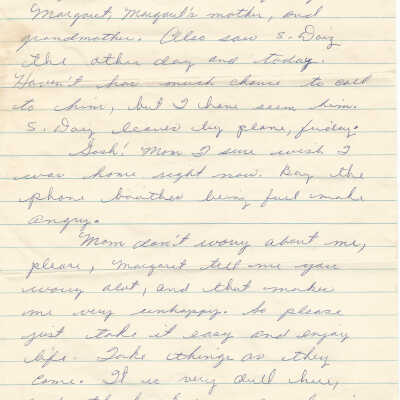 Margaret, Margaret's mother, and
grandmother. Also saw S. Day
the other day and today.
Haven't has much chance to call
to him, but I have seen him.
S. Day leaves by plane, friday.
Gosh! Mom I sure wish I
was home right now. Boy the
phone boothes being full make
angry.
Mom don't worry about me,
please, Margaret tell me you
worry alot, and that makes
me very unhappy. So please
just take it easy and enjoy
life. Take things as they
come. It is very dull here,